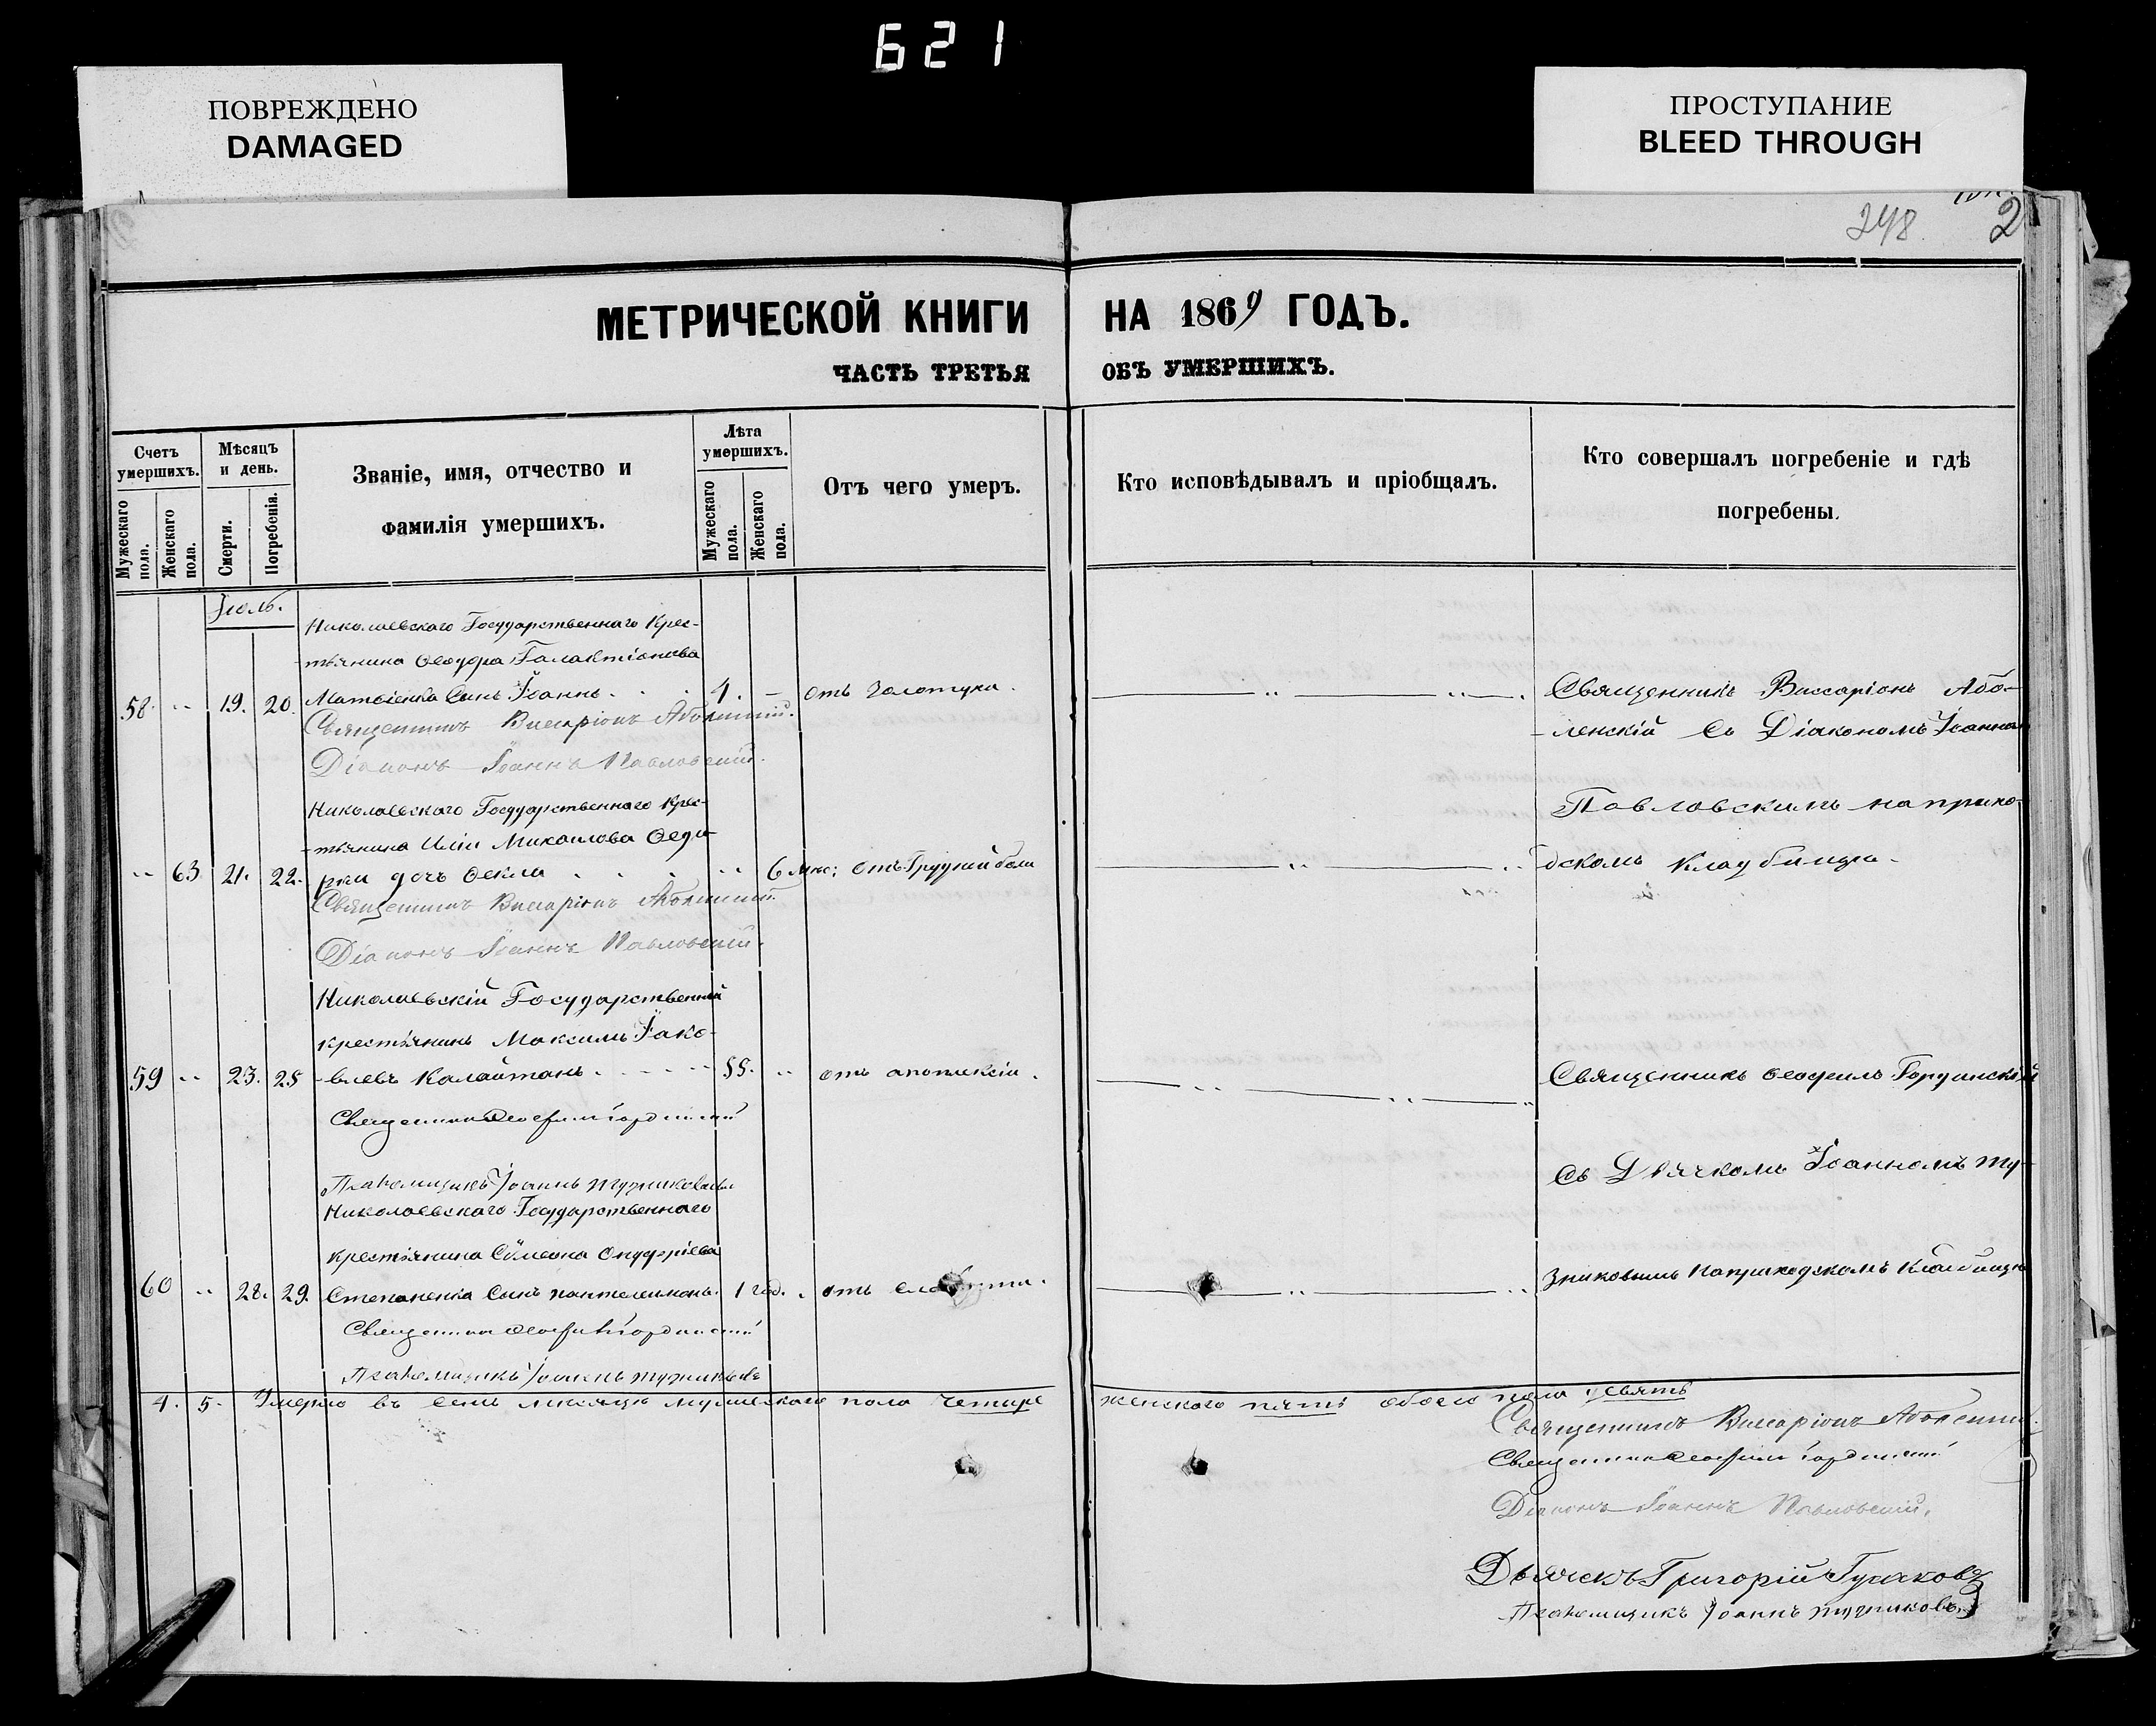 621
ПОВРЕЖДЕНО
DAMAGED
ПРОСТУПАНИЕ
BLEED THROUGH
248
2
МЕТРИЧЕСКОЙ КНИГИ НА 1869 ГОДЪ.
ЧАСТЬ ТРЕТЬЯ ОБЪ УМЕРШИХЪ.
Счетъ умершихъ.
Мужескаго пола.
Женскаго пола.
Мѣсяцъ и день.
Смерти.
Погребенія.
Званіе, имя, отчество и
фамилія умершихъ.
Лѣта умершихъ.
Мужескаго пола.
Женскаго пола.
Отъ чего умеръ.
Кто исповѣдывалъ и пріобщалъ.
Кто совершалъ погребеніе и гдѣ
погребены.
Іюль.
Николаевскаго Государственнаго Крес-
тьянина Ѳеодора Галактіонова
58. 19. 20. Матвіенка Сынъ Іоаннъ 4. отъ Золотухи. Священникъ Виссаріонъ Або-
Священникъ Виссаріонъ Аболенскій.
ленскій Съ Діакономъ Іоанном
Діаконъ Іоаннъ Павловскій.
Николаевскаго Государственнаго Крес-
Павловскимъ на прихо-
тьянина Иліи Михаилова Ѳедо
63. 21. 22. рки дочь Ѳекла 6 мѣс: отъ Грудной боли
дскомъ Кладбищѣ.
Священникъ Виссаріонъ Аболенскій.
Діаконъ Іоаннъ Павловскій.
Николаевскій Государственный
крестьянинъ Максимъ Іако-
59 23. 25 влевъ Калайтанъ 55. отъ апоплексіи. Священникъ Ѳеофилъ Гординскій
Священникъ Ѳеофилъ Гординскій
Съ Дьячкомъ Іоанномъ Ту-
Пономщикъ Іоаннъ Тузниковъ
Николаевскаго Государственнаго
крестьянина Сѵмеона Онуфріева
60 28. 29. Степаненка Сынъ Пантелеимонъ. 1 год. отъ слабости.
зниковымъ На приходскомъ Кладбищѣ
Священникъ Ѳеофилъ Гординскій
Іоаннъ Тузниковъ
4. 5. Умерло въ семъ мѣсяцѣ мужескаго пола четыре женскаго пять обоего пола девять
Священникъ Виссаріонъ Аболенскій.
Священникъ Ѳеофилъ Гординскій
Діаконъ Іоаннъ Павловскій.
Дьячекъ Григорій Гусаковъ
Іоаннъ Тузниковъ.